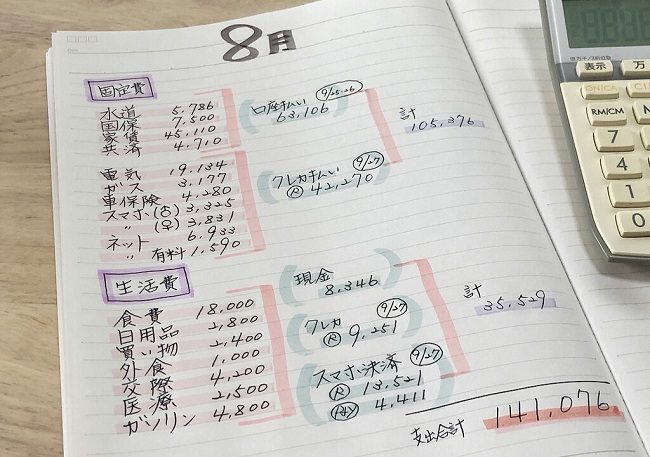 8月
国定費
水道 5,786
国保 7,500
家賃 45,110
共済 4,710
口座払い 9/25.26
63,106
計
105,376
電気 19,134
ガス 3,177
車保険 4,280
スマホ(♂) 3,325
〃 (♀) 3,831
ネット 6,933
〃 有料 1,590
クレカ払い 9/27
Ⓡ 42,270
生活費
食費 18,000
日用品 2,800
買い物 2,400
外食 1,000
交際 4,200
医療 2,500
ガソリン 4,800
現金
8,346
クレカ 9/27
Ⓡ 9,251
スマホ決済 9/27
Ⓡ 13,521
4,411
計
35,529
支出合計 141,076
表示
万
RM/CM
7
4
1
0